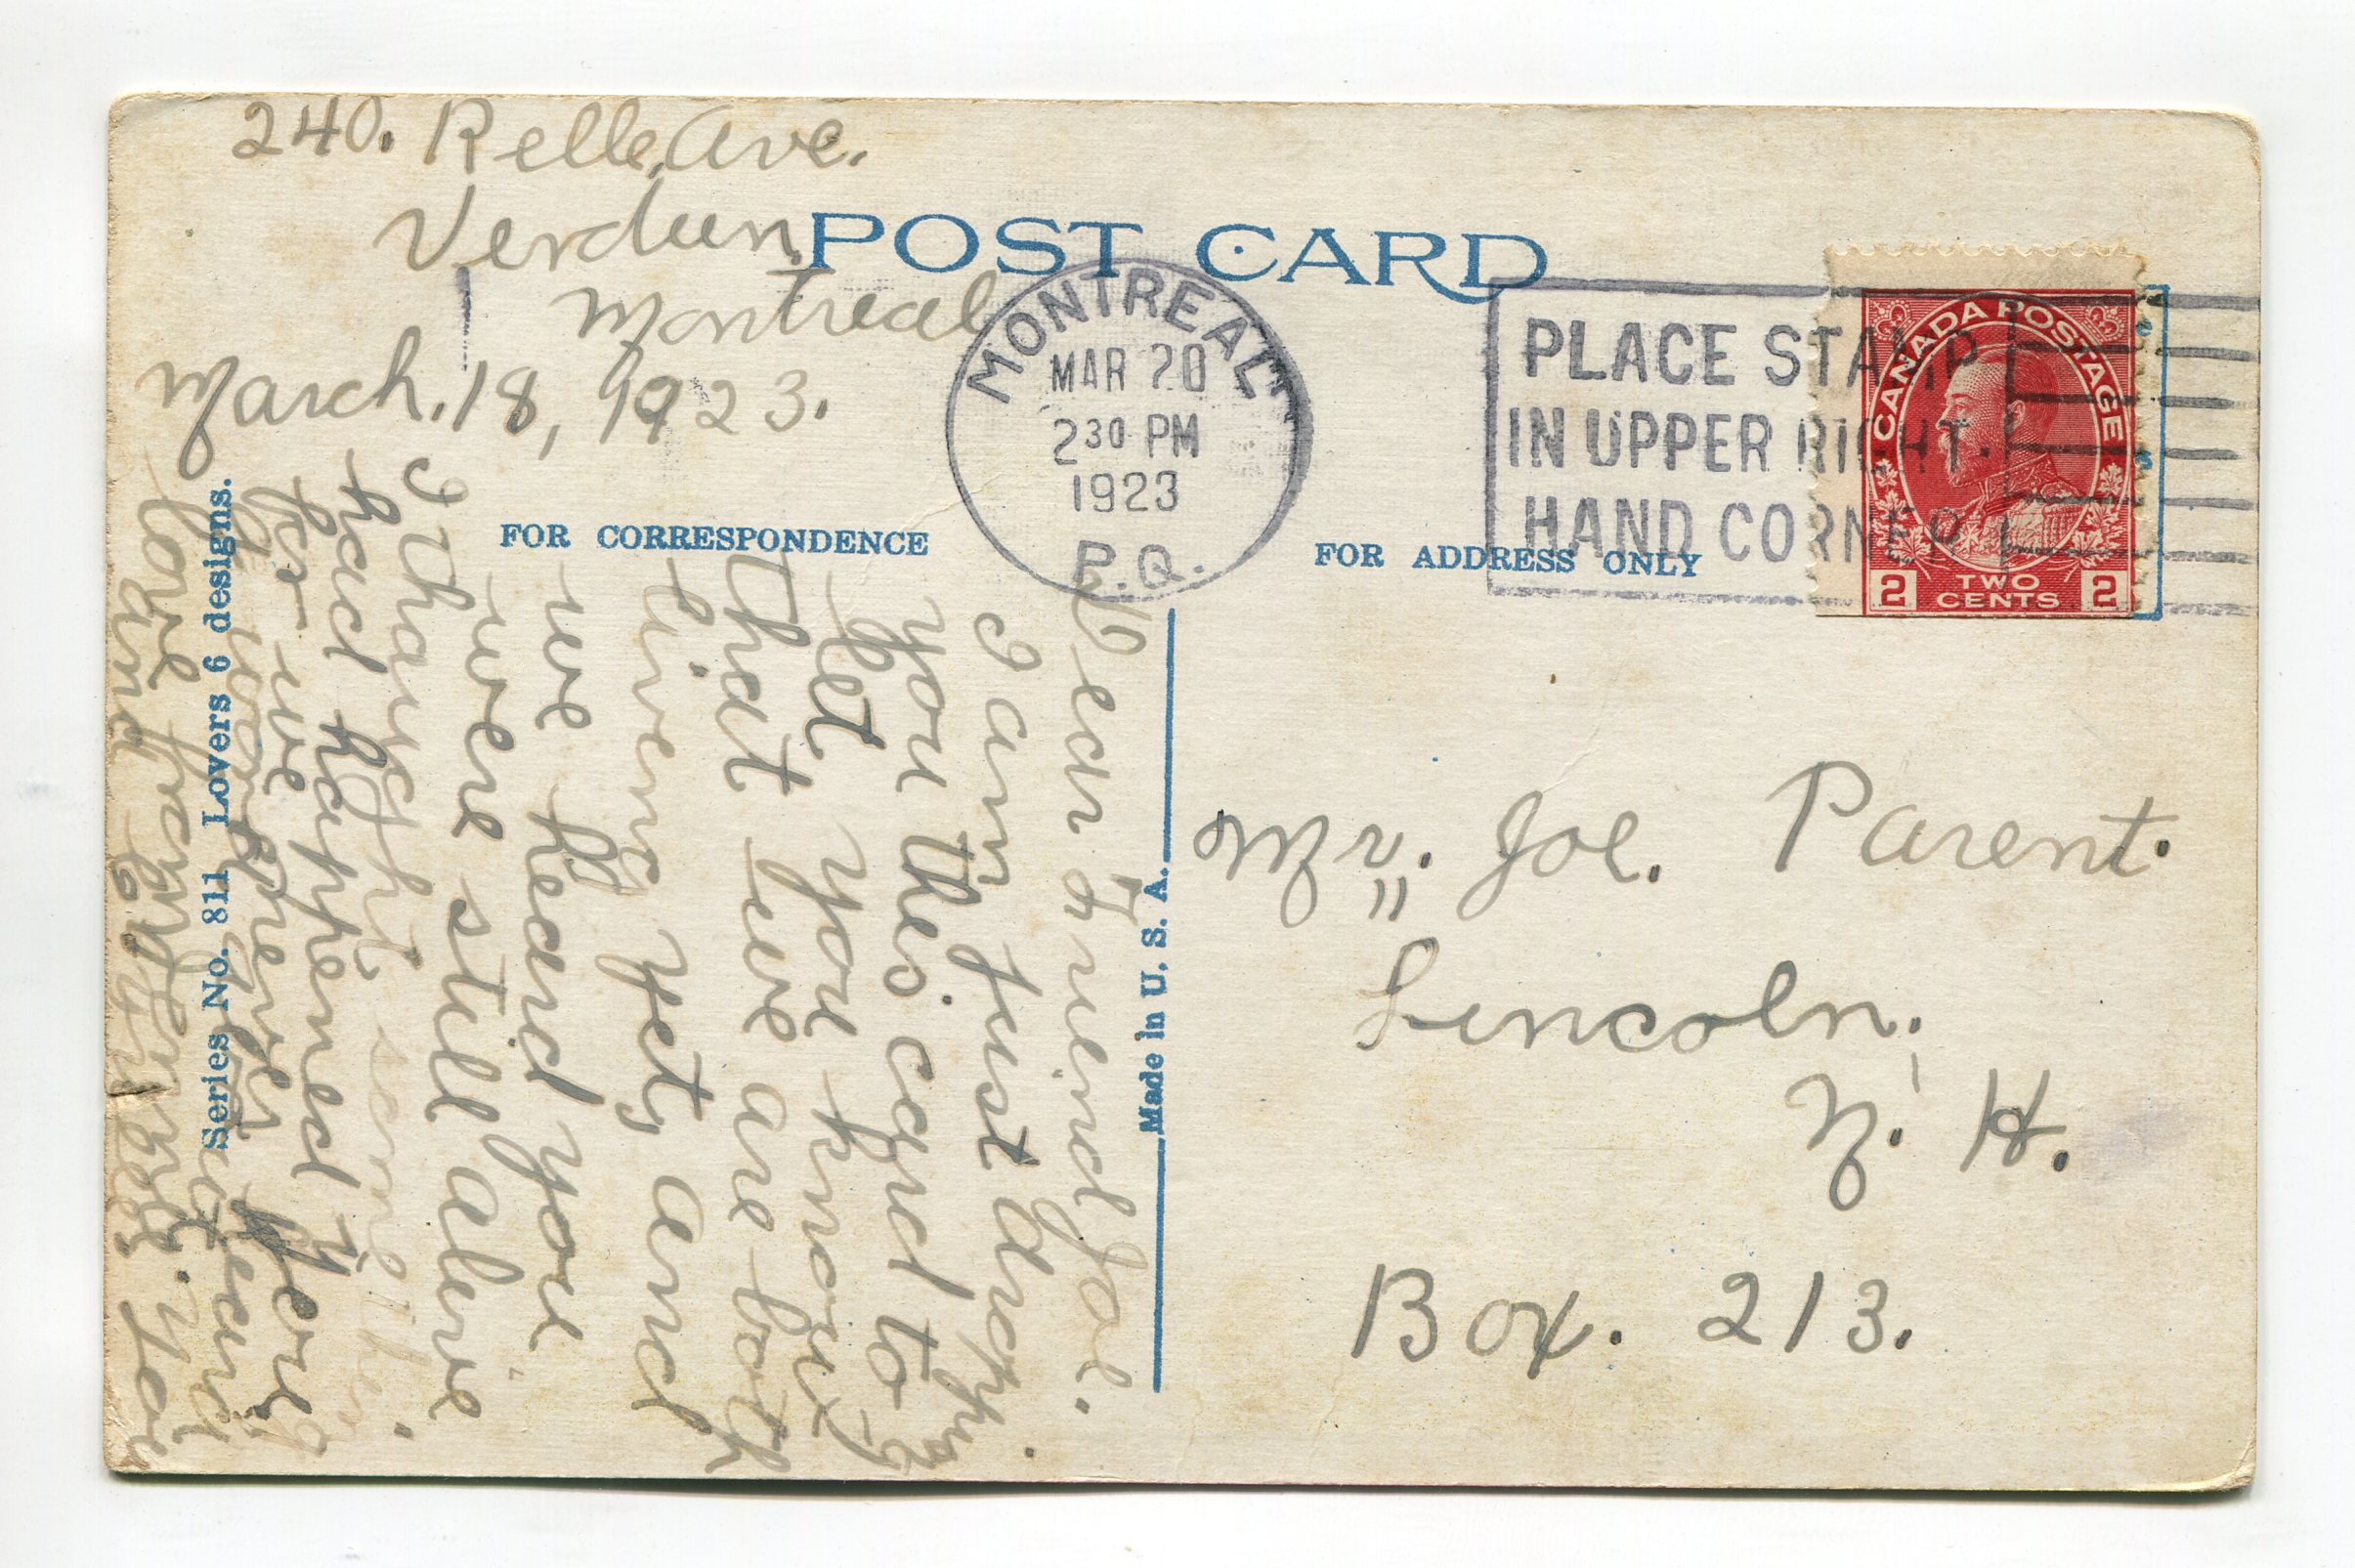 240. Relle, Ave.
Verdun,
Montreal
March. 18, 1923.
POST CARD
MONTREAL
MAR 20
2 30 PM
1923
P.Q.
PLACE STAMP
IN UPPER RIGHT
HAND CORNER
CANADA POSTAGE
2 TWO CENTS 2
FOR CORRESPONDENCE
FOR ADDRESS ONLY
Dear Friend Joe.
I am just droping
you this card to
let you know
that we are both
living yet, and
we heard you
were still alive
I thought some thing
had happened you
for we
heard
love from
and
Series No. 811 Lovers 6 designs.
Made in U. S. A.
Mr. Joe. Parent.
Lincoln.
N. H.
Box. 213.